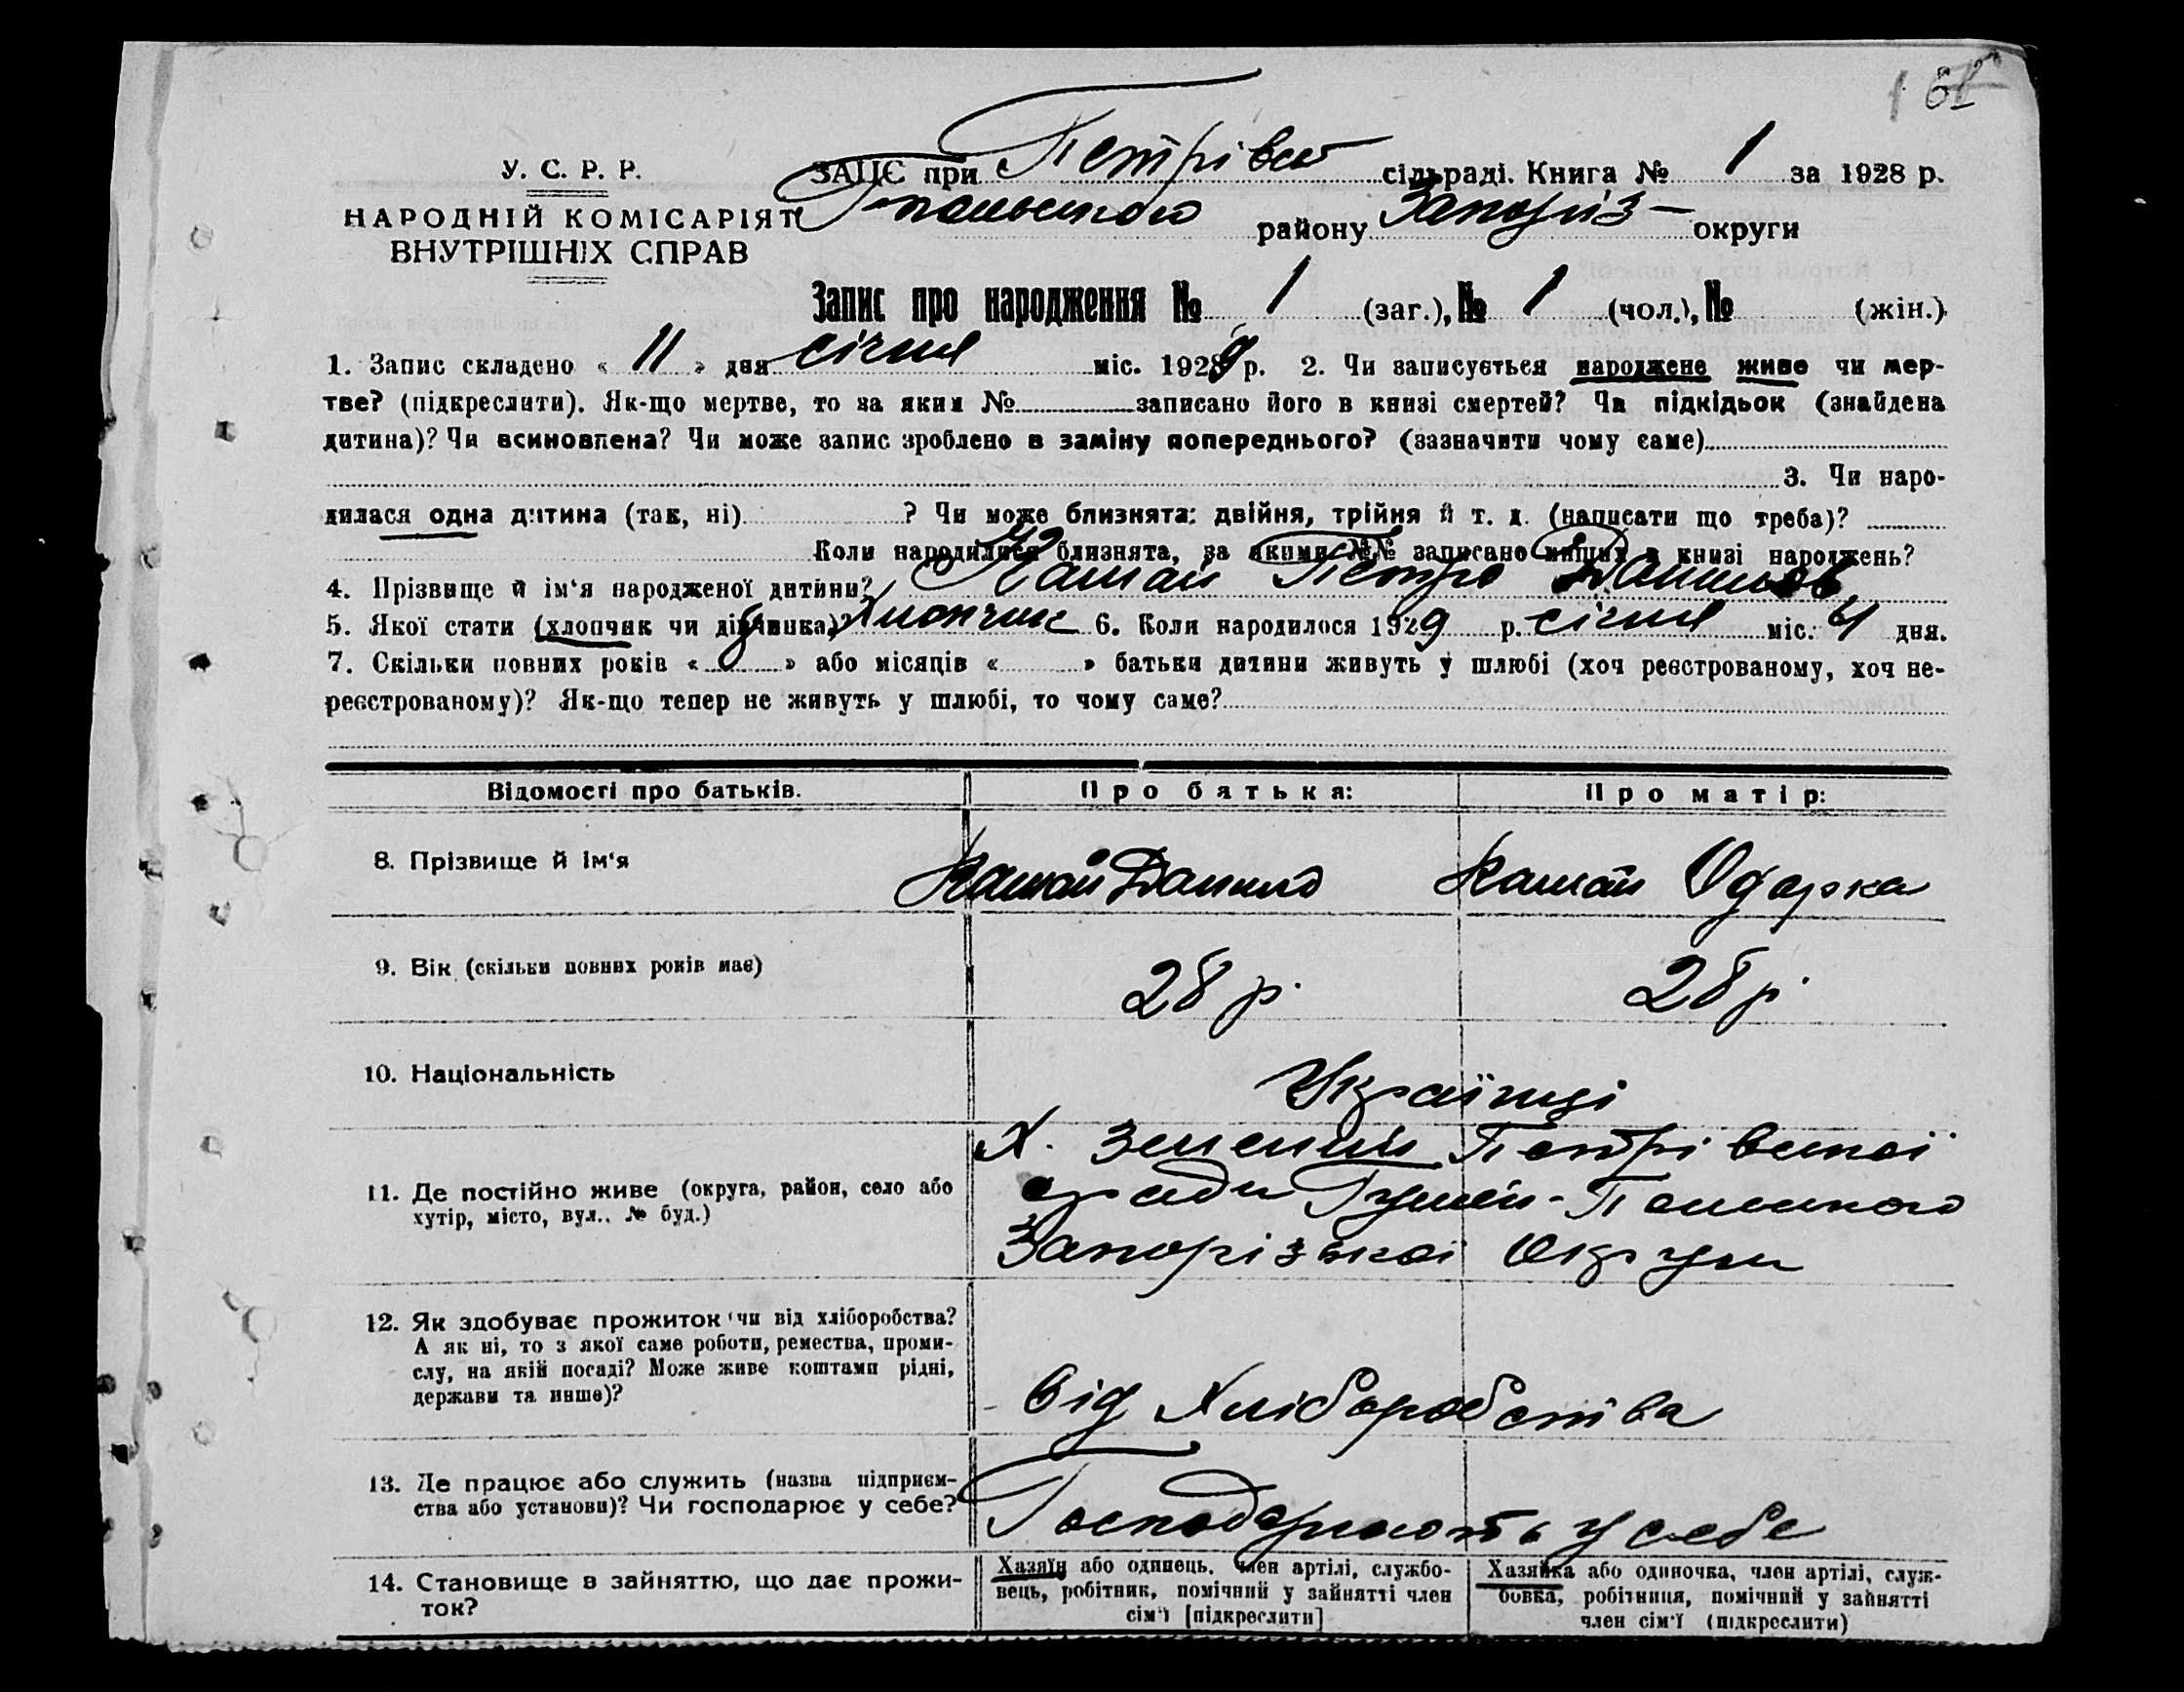 У. С. Р. Р.
НАРОДНІЙ КОМІСАРІЯТ
ВНУТРІШНІХ СПРАВ
ЗАЦС при Петрівск сільраді. Книга № 1 за 1928 р.
Г-польського району Запоріз- округи
Запис про народження № 1 (заг.), № 1 (чол.), № (жін.)
1. Запис складено « 11 » дня січня міс. 1929 р. 2. Чи записується народжене живе чи мер-
тве? (підкреслити). Як-що мертве, то за яким № записано його в книзі смертей? Чи підкідьок (знайдена
дитина)? Чи всиновлена? Чи може запис зроблено в заміну попереднього? (зазначити чому саме)
3. Чи наро-
дилася одна дитина (так, ні) ? Чи може близнята: двійня, трійня й т. д. (написати що треба)?
Коли народилися близнята, за якими №№ записано инших в книзі народжень?
4. Прізвище й ім‘я народженої дитини? Кашай Петро Данилов
5. Якої стати (хлопчик чи дівчинка)? Хлопчик 6. Коли народилося 1929 р. січня міс. 4 дня.
7. Скільки повних років « 8 » або місяців « » батьки дитини живуть у шлюбі (хоч реєстрованому, хоч не-
реєстрованому)? Як-що тепер не живуть у шлюбі, то чому саме?
Відомості про батьків. Про батька: Про матір:
8. Прізвище й ім‘я Кашай Данило Кашай Одарка
9. Вік (скільки повних років має) 28 р. 28 р.
10. Національність Українці
11. Де постійно живе (округа, район, село або
хутір, місто, вул., № буд.)
Х. Зелений Петрівської
сради Гуляй-Польского
Запорізької Округи
12. Як здобуває прожиток чи від хліборобства?
А як ні, то з якої саме роботи, ремества, проми-
слу, на якій посаді? Може живе коштами рідні,
держави та инше)?
Від Хліборобства
13. Де працює або служить (назва підприєм-
ства або установи)? Чи господарює у себе?
Господарюють у себе
14. Становище в зайняттю, що дає прожи-
ток?
Хазяїн або одинець, член артілі, службо-
вець, робітник, помічний у зайнятті член
сім‘ї [підкреслити]
Хазяйка або одиночка, член артілі, служ-
бовка, робітниця, помічний у зайнятті
член сім‘ї (підкреслити)